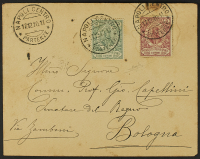 NAPOLI CENTRO
PARTENZE
Illmo Signore
Comm. Prof. Gio. Capellini
Senatore del Regno
Via Zamboni
Bologna